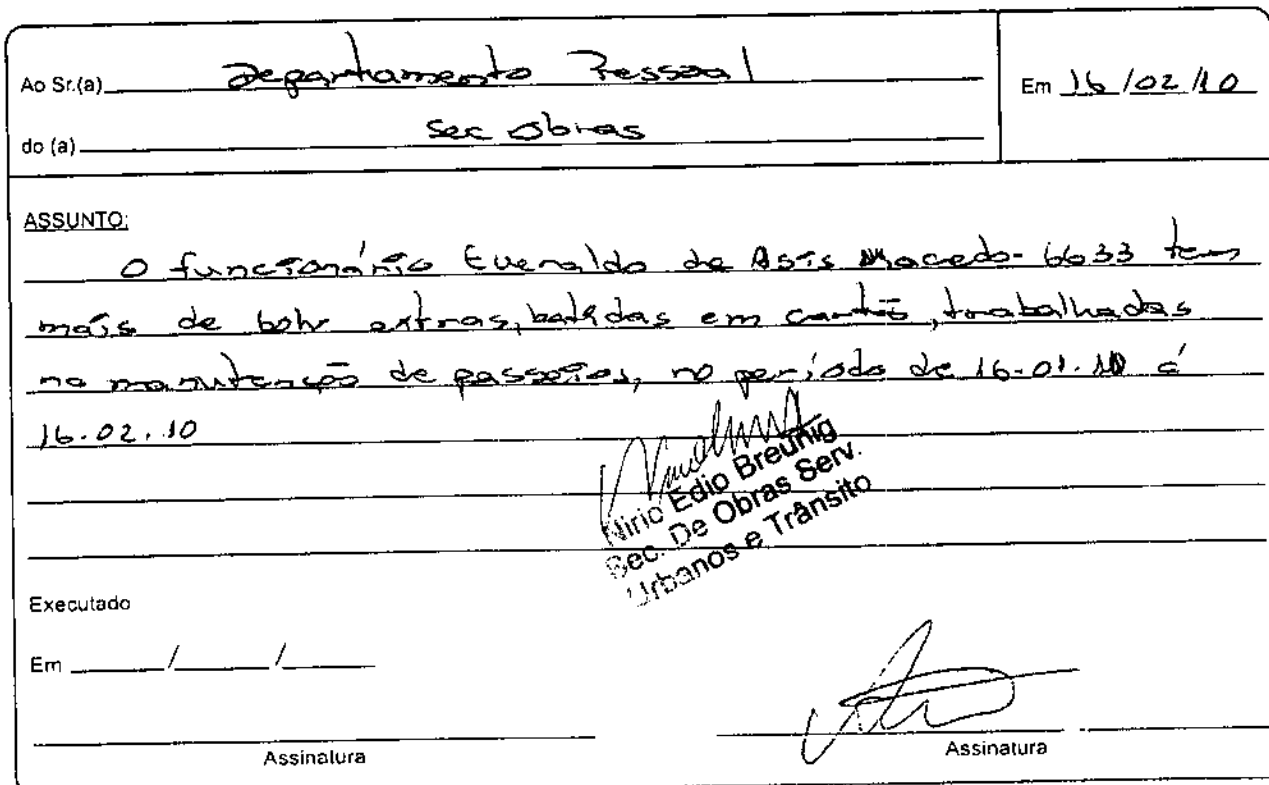 Ao Sr.(a) Departamento Pessoal
Em 16/02/10
do (a) Sec Obras
ASSUNTO:
O funcionário Everaldo de Assis Macedo - 6633 tem
mais de 60hr extras, batidas em cartão, trabalhadas
na manutenção de passeios, no período de 16.01.10 á
16.02.10
Nirio Edio Breunig
Sec. De Obras Serv.
Urbanos e Trânsito
Executado
Em / /
Assinatura
Assinatura